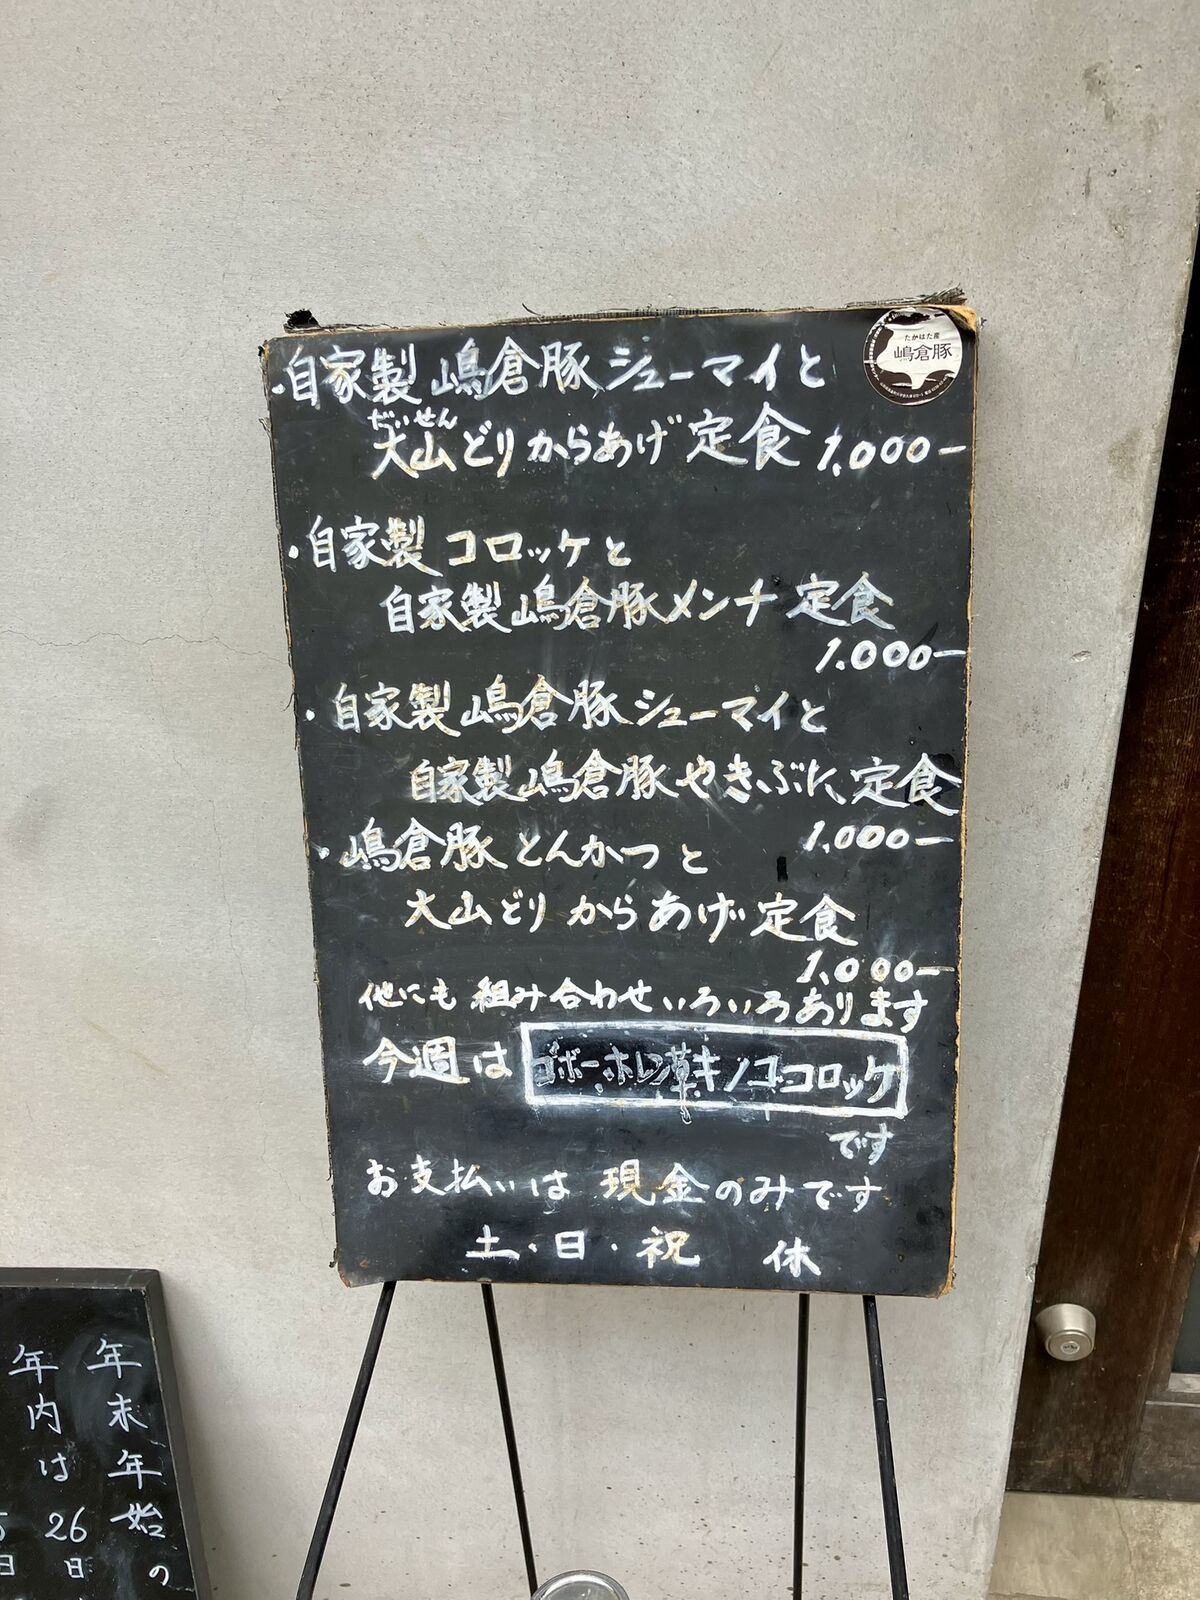 ・自家製 嶋倉豚シューマイと
だいせん
大山どりからあげ定食 1,000-
・自家製コロッケと
自家製嶋倉豚メンチ定食
1,000-
・自家製嶋倉豚シューマイと
自家製嶋倉豚やきぶた定食
1,000-
・嶋倉豚とんかつと
大山どりからあげ定食
1,000-
他にも組み合わせいろいろあります
今週は ゴボー・ホーレン草キノココロッケ
です
お支払いは 現金のみです
土・日・祝 休
たかはた産
嶋倉豚
年末年始の
年内は26日